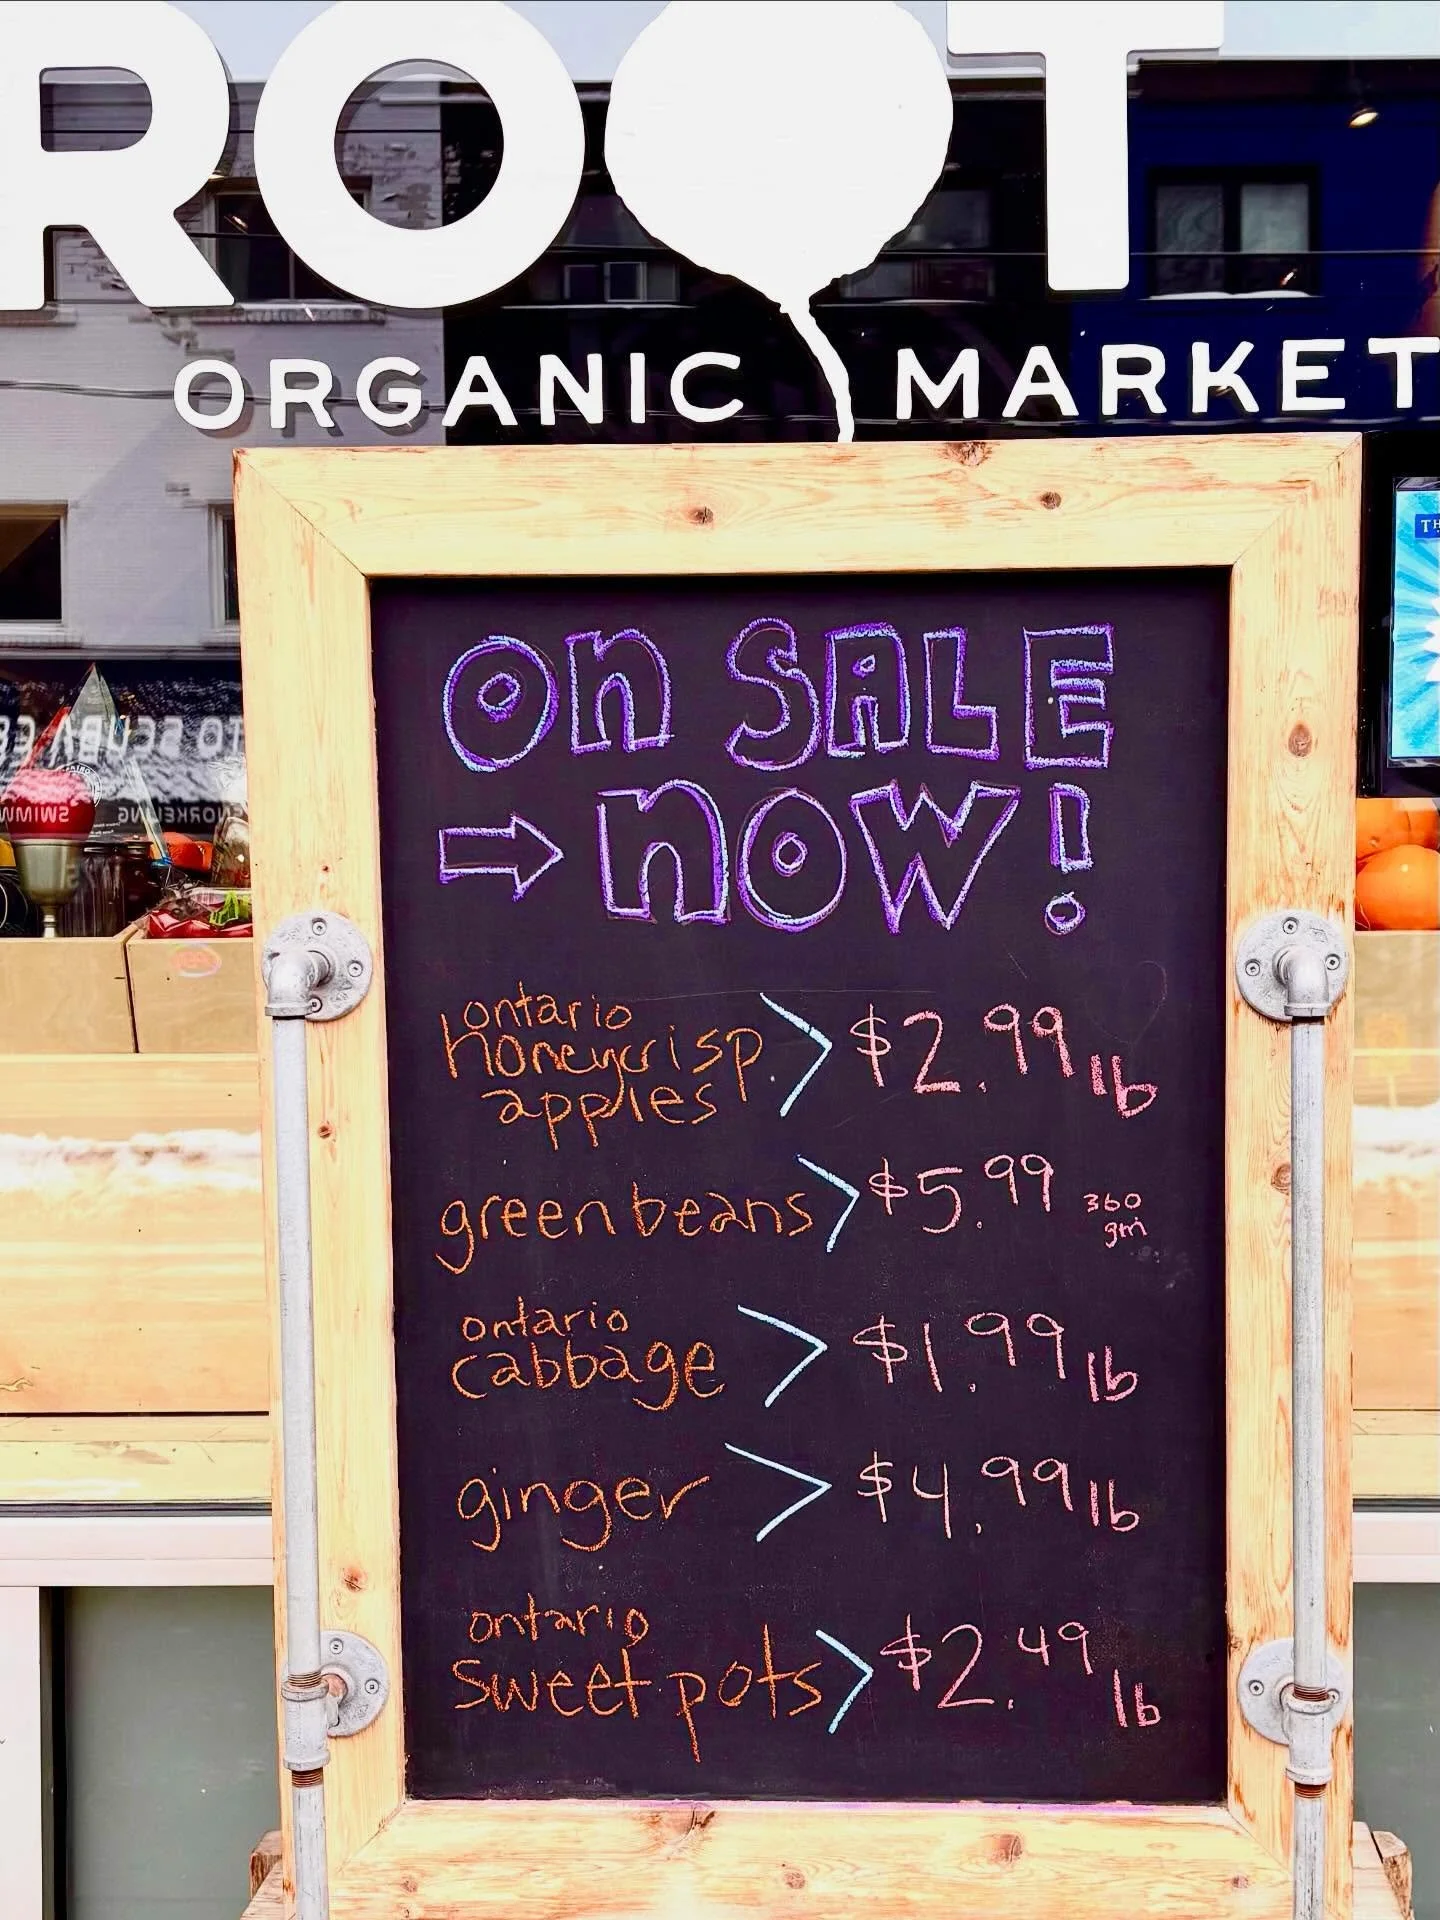 ROOT
ORGANIC MARKET
TH
On SALE
→ nOW!
ontario
honeycrisp > $2.99 lb
apples
green beans > $5.99 360
gm
ontario
cabbage > $1.99 lb
ginger > $4.99 lb
ontario
sweet pots > $2.49 lb